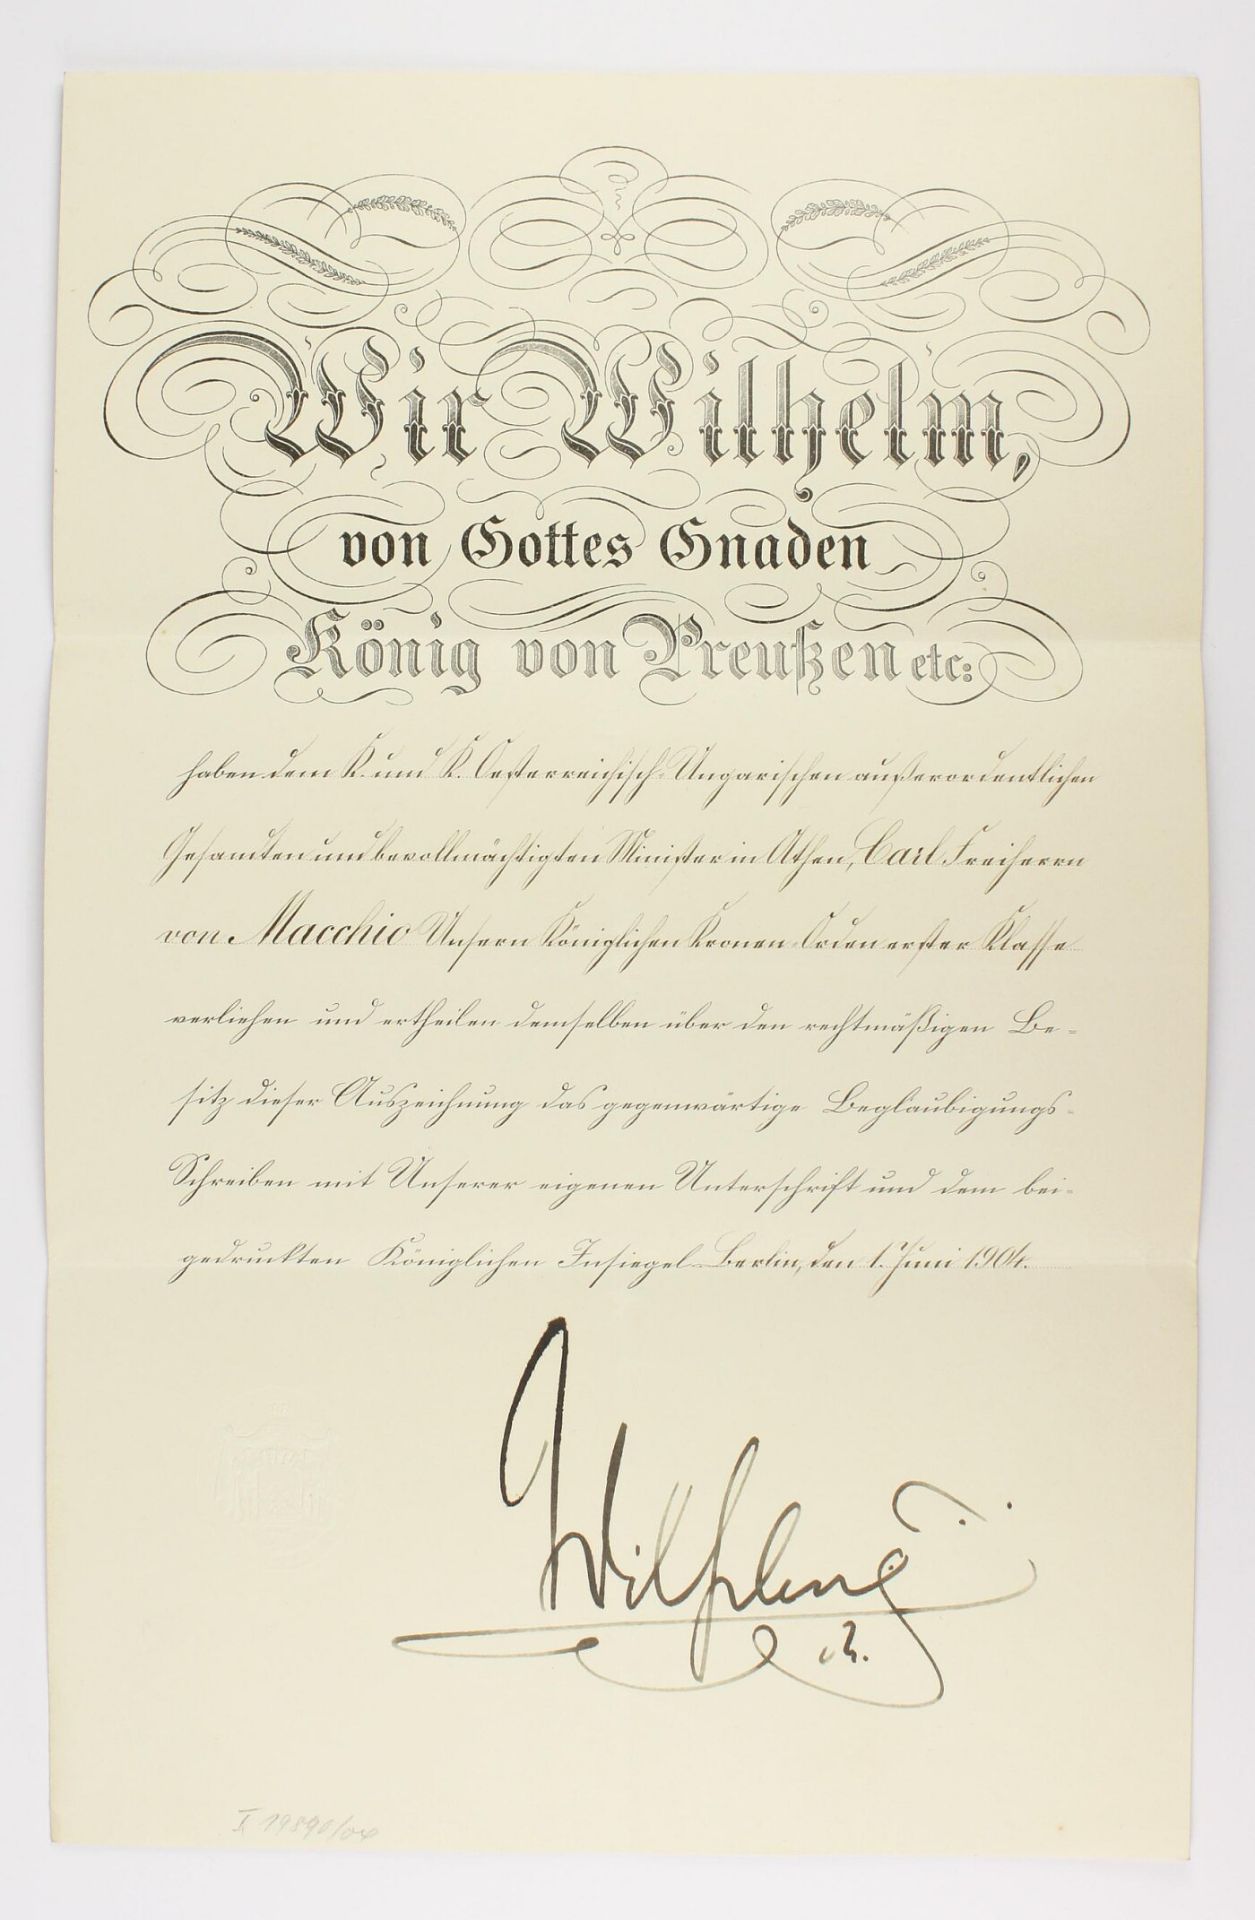 Wir Wilhelm,
von Gottes Gnaden
König von Preußen etc:
haben dem K. und K. Oesterreichisch-Ungarischen außerordentlichen
Gesandten und bevollmächtigten Minister in Athen, Carl Freiherrn
von Macchio Unsern Königlichen Kronen-Orden erster Klasse
verliehen und ertheilen demselben über den rechtmäßigen Be-
sitz dieser Auszeichnung das gegenwärtige Beglaubigungs-
Schreiben mit Unserer eigenen Unterschrift und dem bei-
gedruckten Königlichen Insiegel. Berlin, den 1. Juni 1904.
Wilhelm
R.